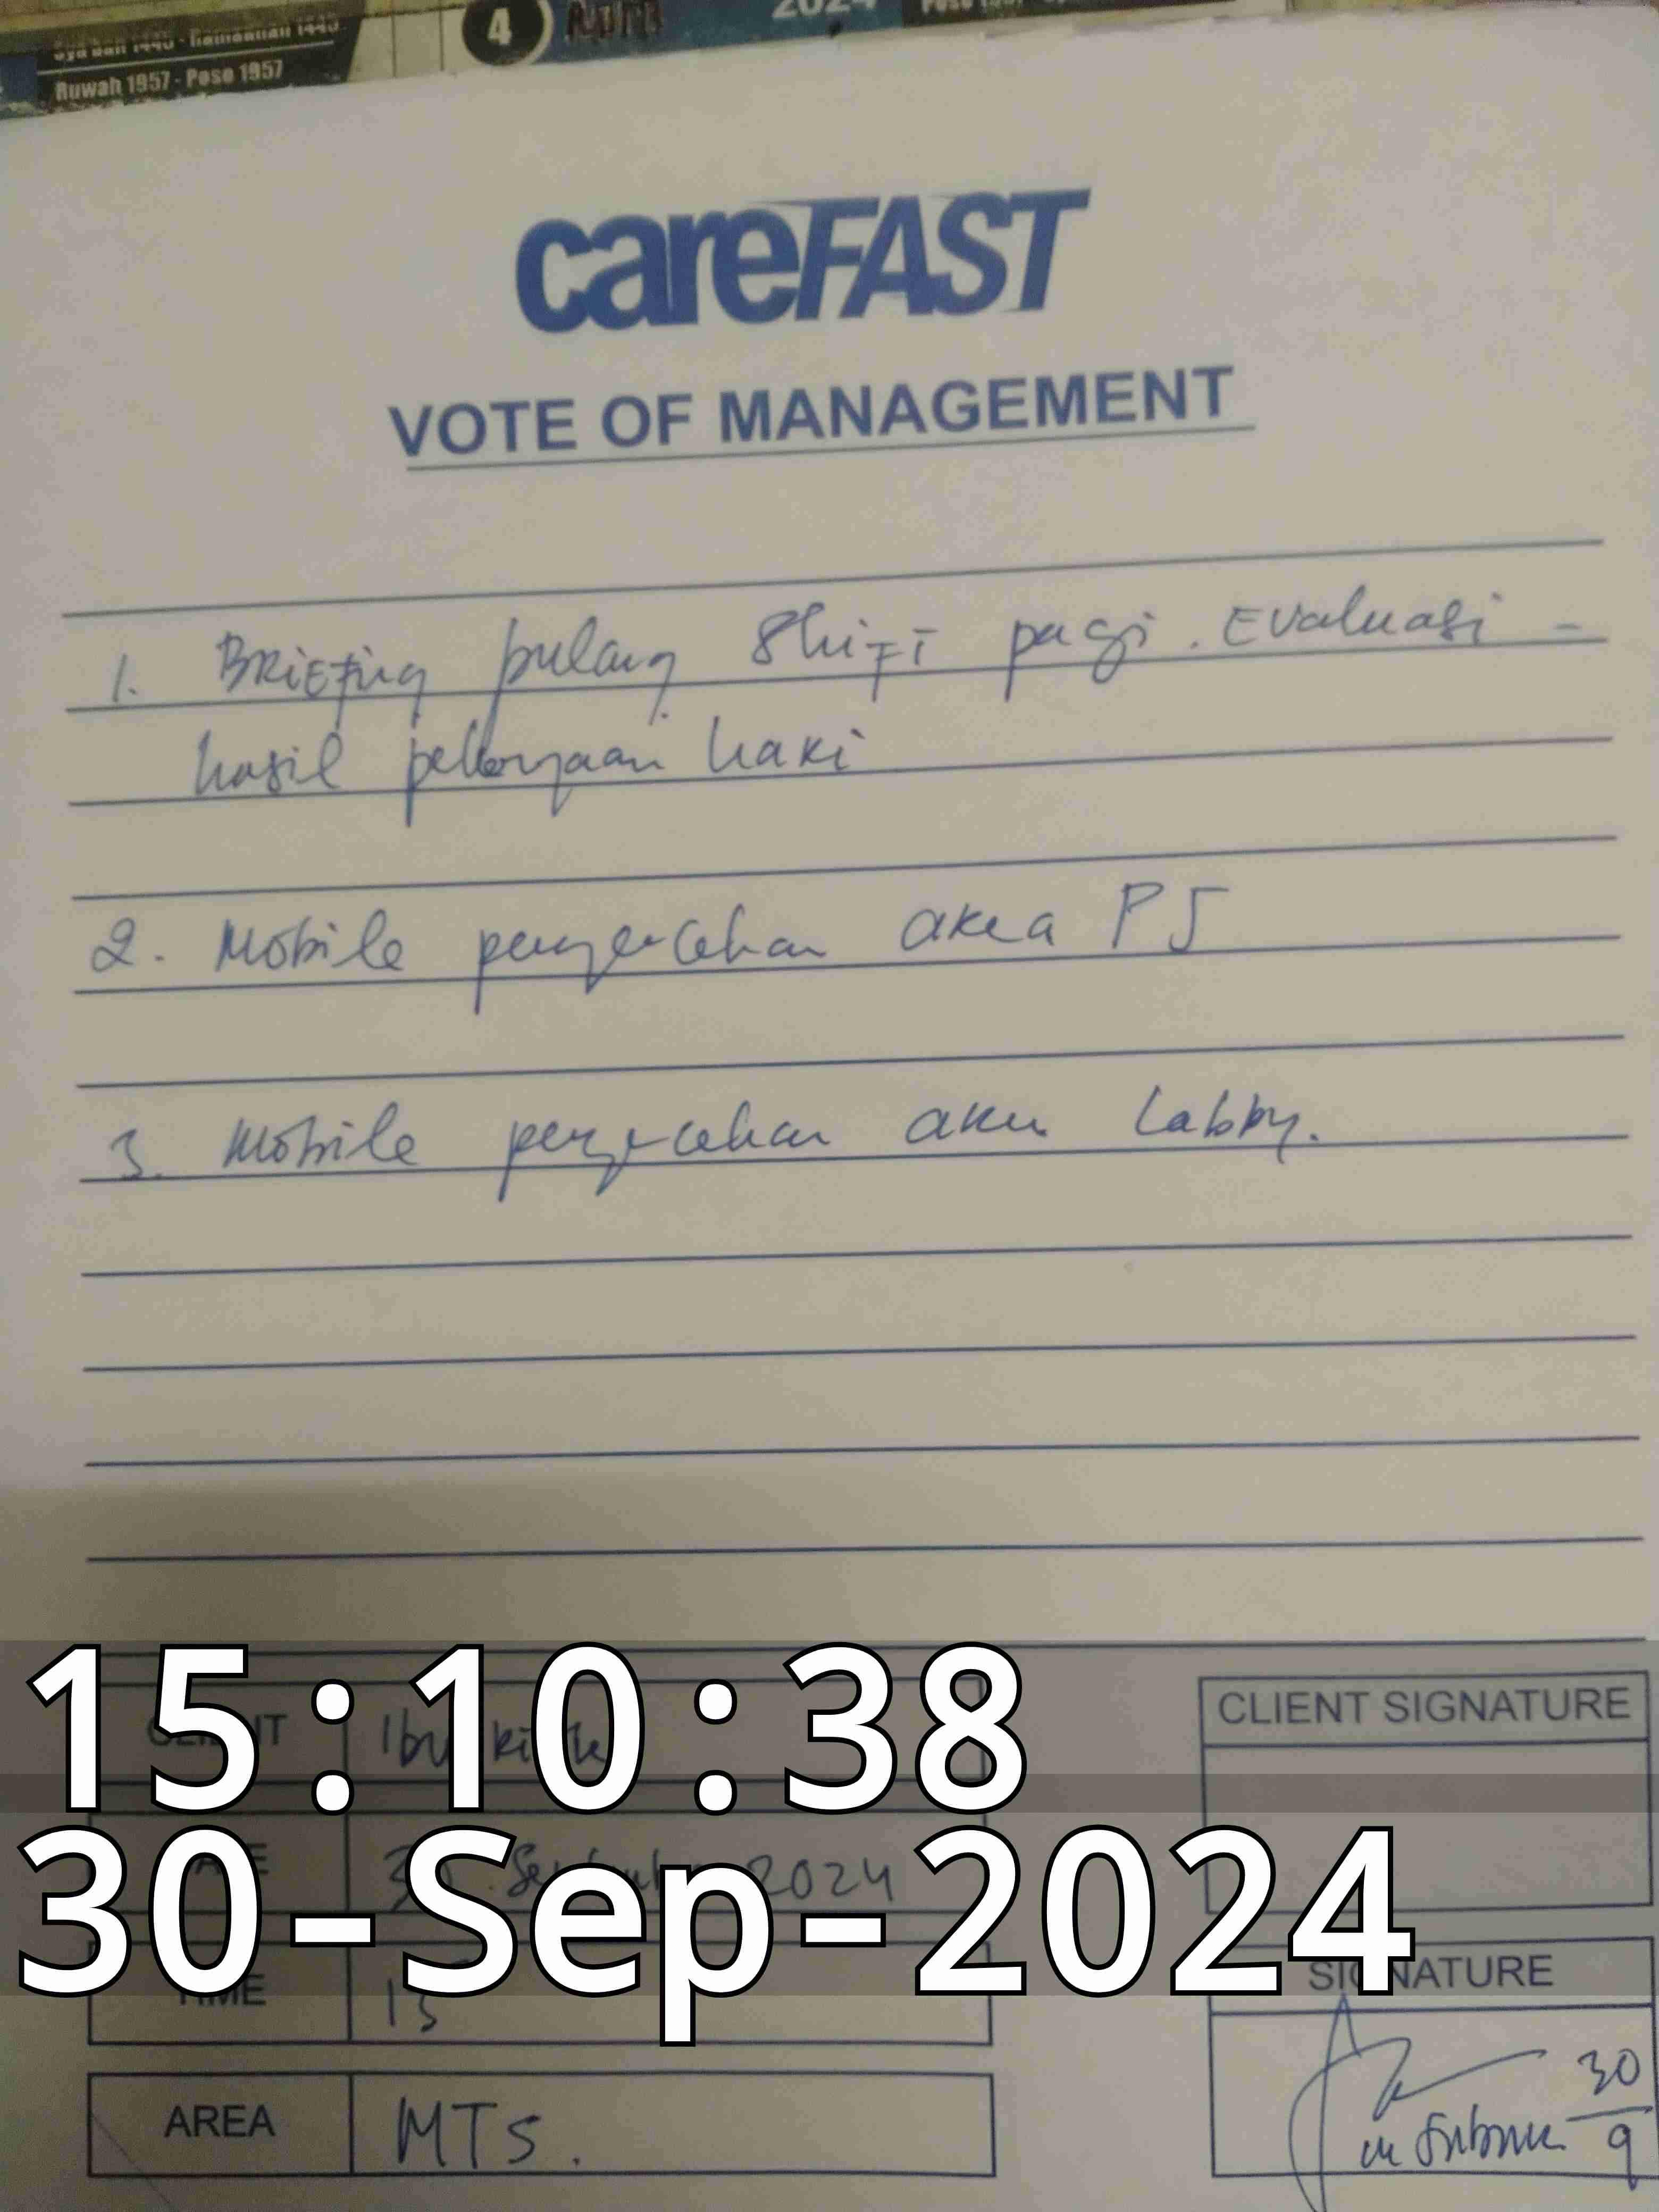 Sya'ban 1445 - Ramadhan 1445
Ruwah 1957 - Poso 1957
4
April
2024
careFAST
VOTE OF MANAGEMENT
1. Briefing pulang shift pagi. Evaluasi -
hasil pekerjaan hari
2. Mobile pengecekan area PJ
3. Mobile pengecekan area Lobby.
15:10:38
30-Sep-2024
CLIENT Ibu
DATE 30 September 2024
TIME 15
AREA MTs.
CLIENT SIGNATURE
SIGNATURE
30
9